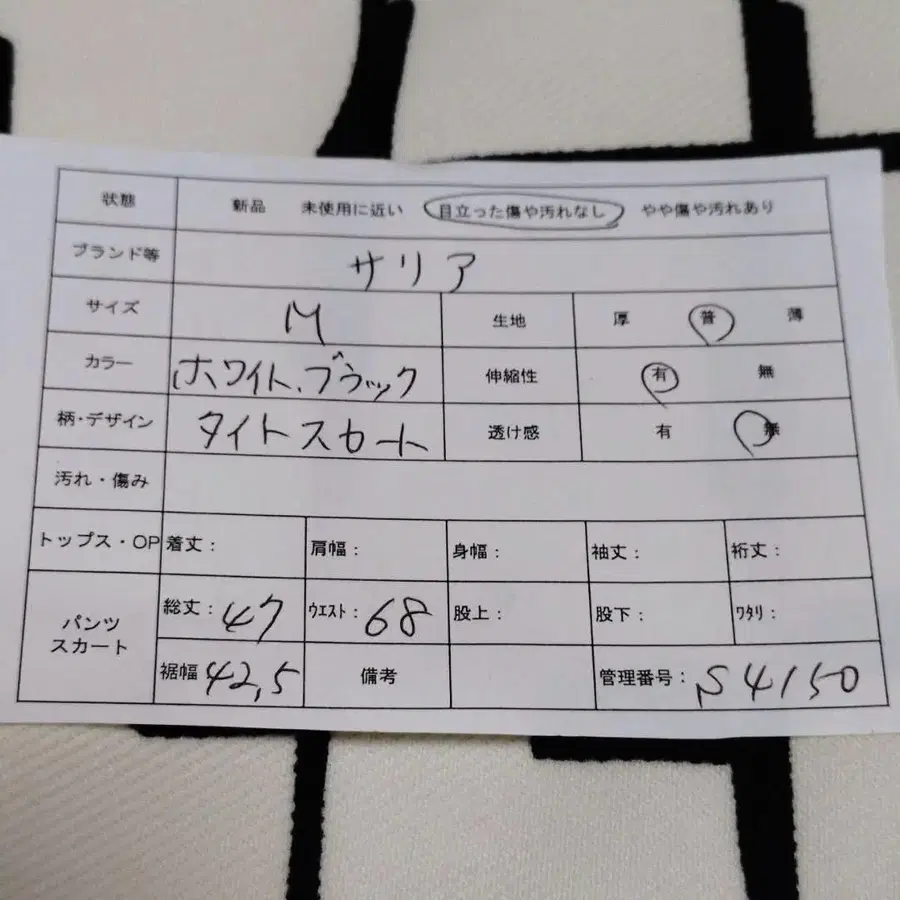 状態 新品 未使用に近い 目立った傷や汚れなし やや傷や汚れあり
ブランド等 サリア
サイズ M 生地 厚 普 薄
カラー ホワイト、ブラック 伸縮性 有 無
柄・デザイン タイトスカート 透け感 有 無
汚れ・傷み
トップス・OP 着丈: 肩幅: 身幅: 袖丈: 裄丈:
パンツ スカート 総丈:47 ウエスト:68 股上: 股下: ワタリ:
裾幅 42,5 備考 管理番号:S4150